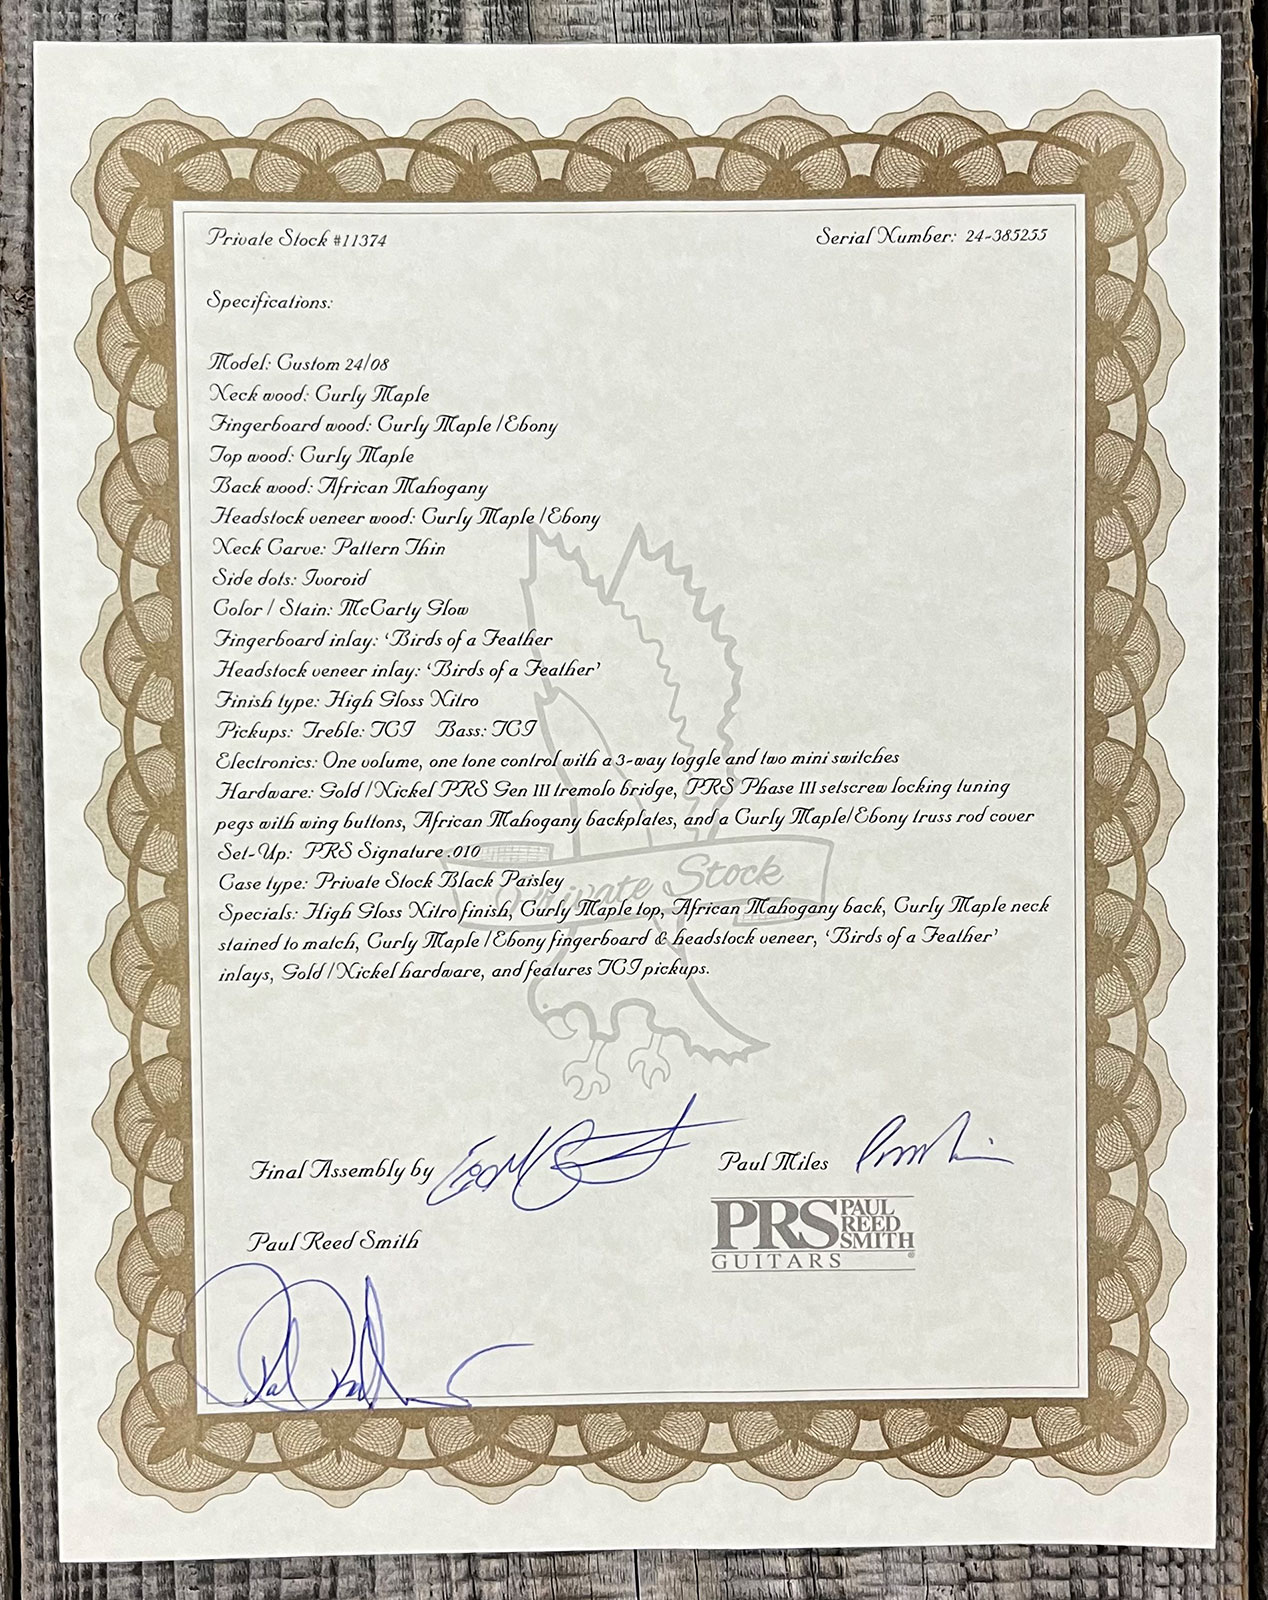 Private Stock #11374 Serial Number: 24-385255
Specifications:
Model: Custom 24/08
Neck wood: Curly Maple
Fingerboard wood: Curly Maple / Ebony
Top wood: Curly Maple
Back wood: African Mahogany
Headstock veneer wood: Curly Maple / Ebony
Neck Carve: Pattern Thin
Side dots: Ivoroid
Color / Stain: McCarty Glow
Fingerboard inlay: ‘Birds of a Feather
Headstock veneer inlay: ‘Birds of a Feather’
Finish type: High Gloss Nitro
Pickups: Treble: TCI Bass: TCI
Electronics: One volume, one tone control with a 3-way toggle and two mini switches
Hardware: Gold / Nickel PRS Gen III tremolo bridge, PRS Phase III setscrew locking tuning
pegs with wing buttons, African Mahogany backplates, and a Curly Maple/Ebony truss rod cover
Set-Up: PRS Signature .010
Case type: Private Stock Black Paisley
Private Stock
Specials: High Gloss Nitro finish, Curly Maple top, African Mahogany back, Curly Maple neck
stained to match, Curly Maple / Ebony fingerboard & headstock veneer, ‘Birds of a Feather’
inlays, Gold / Nickel hardware, and features TCI pickups.
Final Assembly by
Paul Miles
Paul Reed Smith
PRS PAUL
REED
SMITH
GUITARS